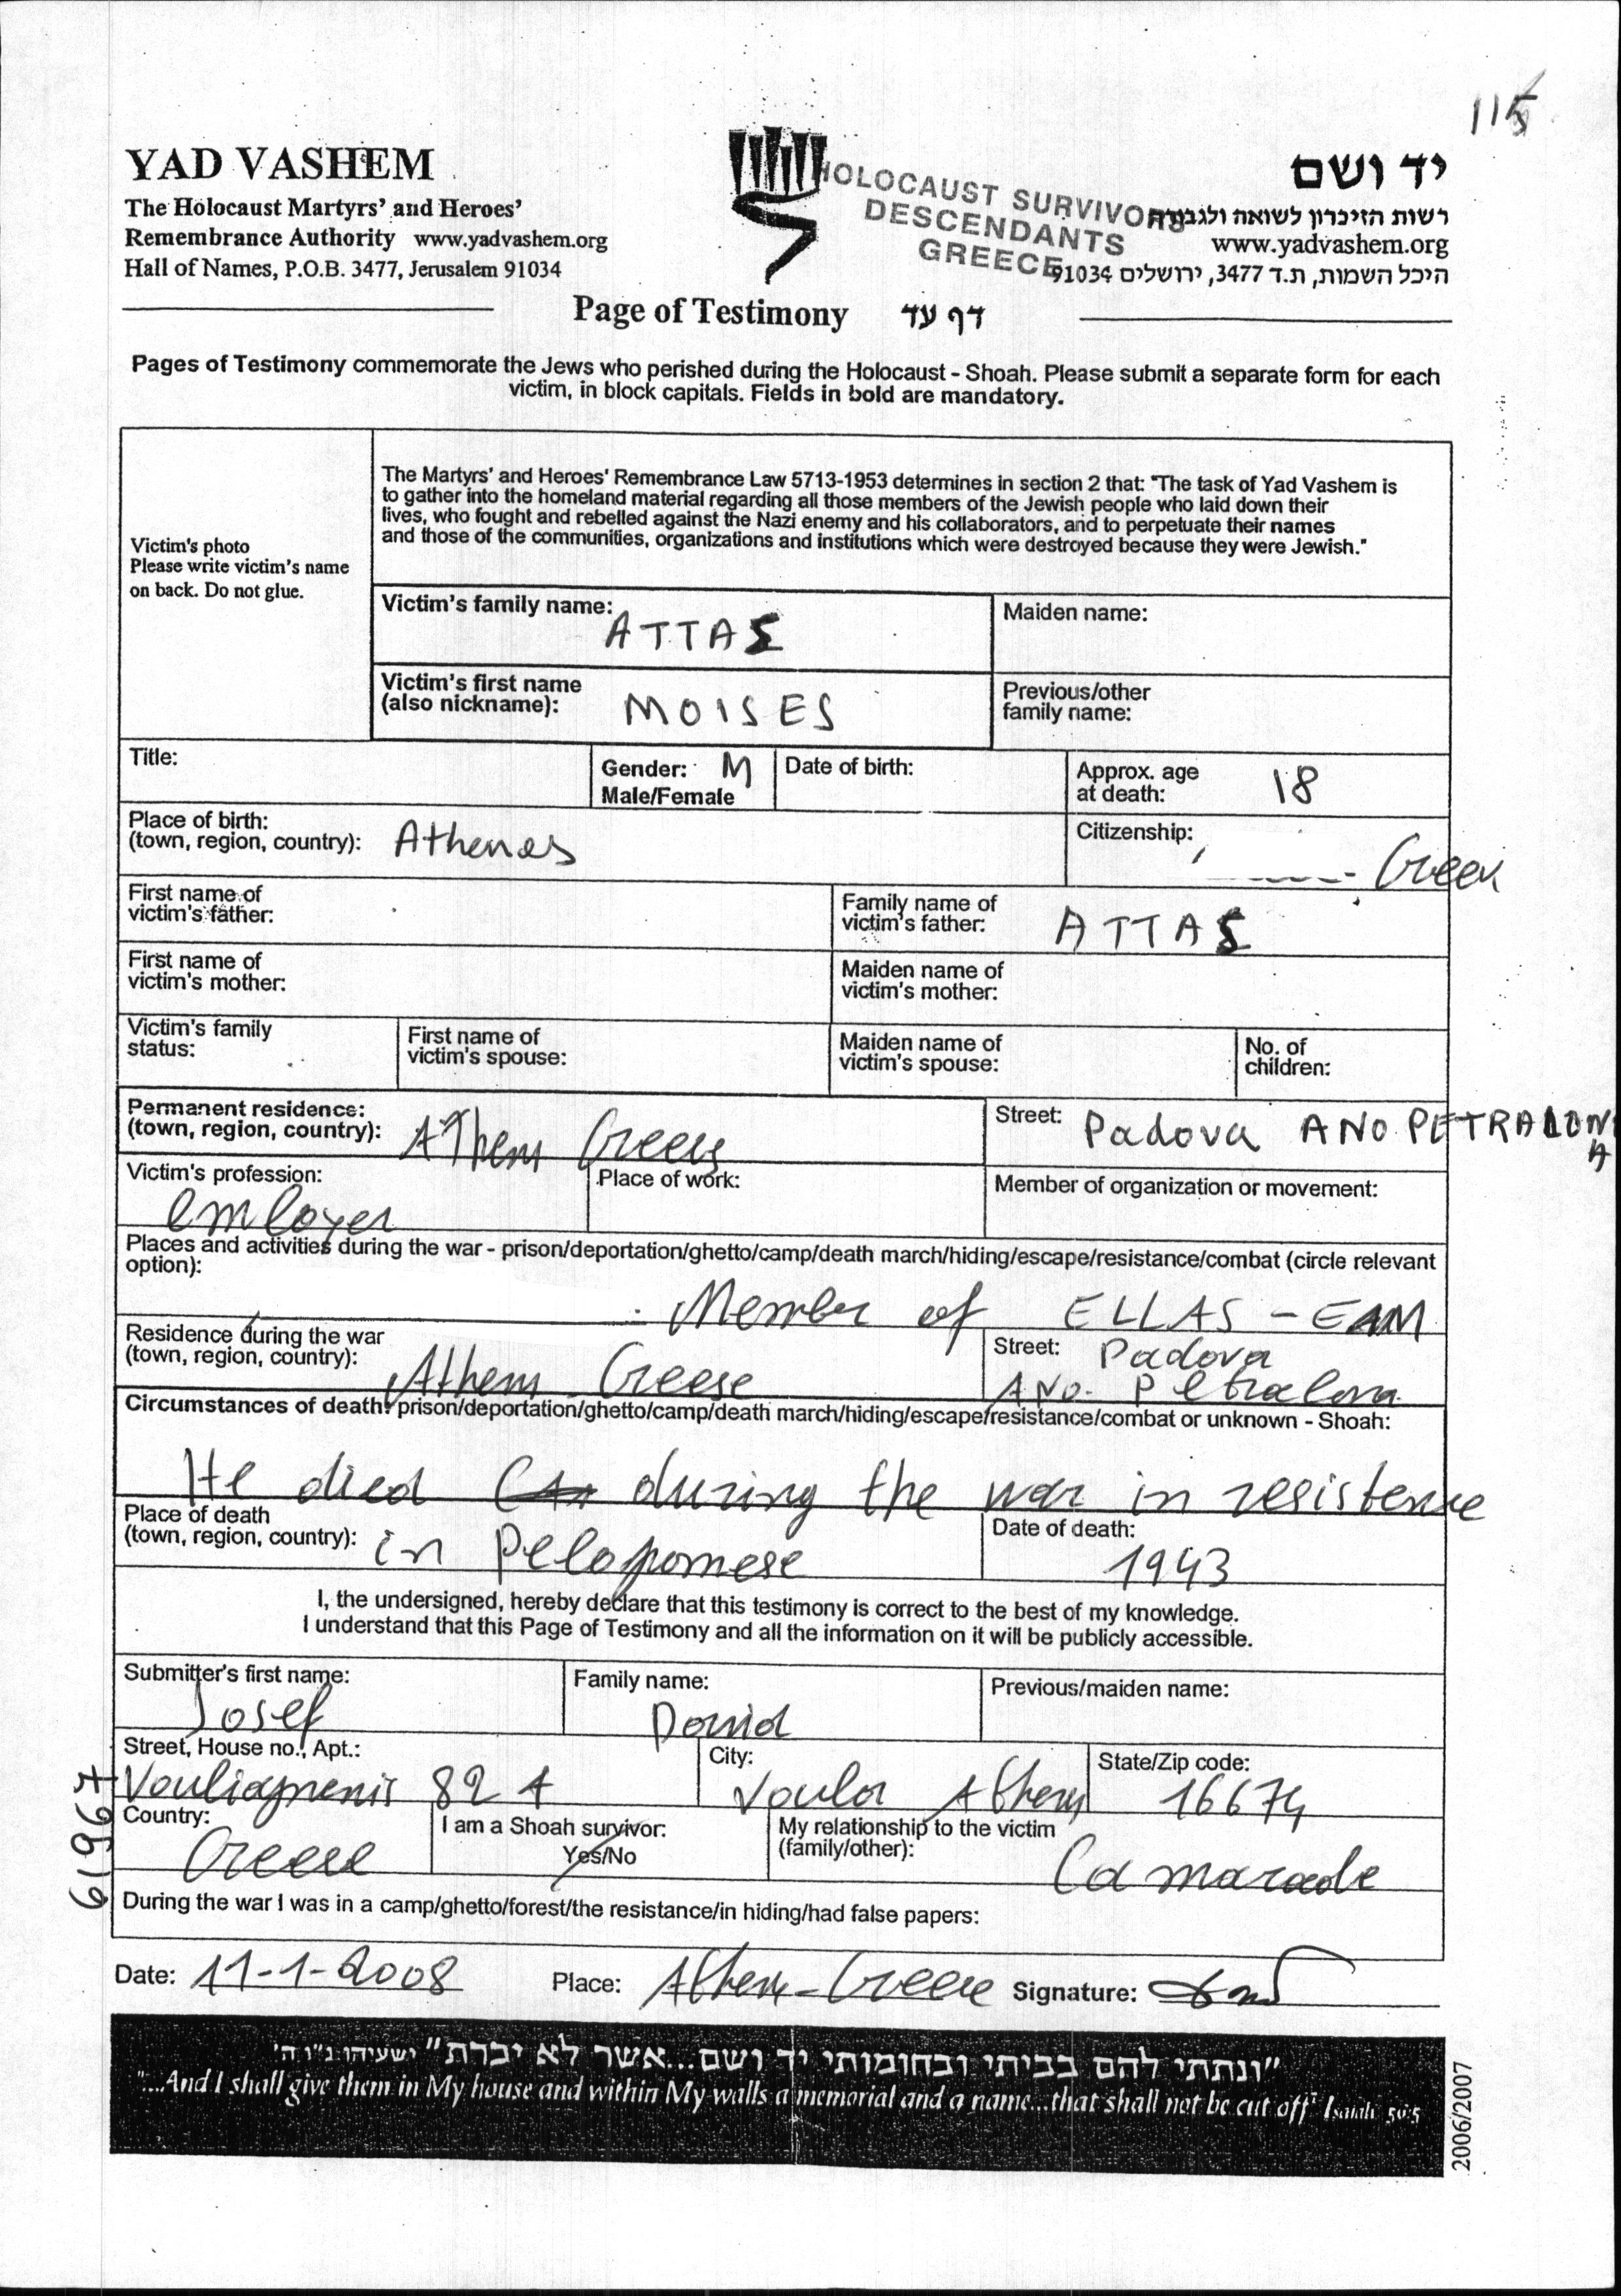 115
YAD VASHEM
The Holocaust Martyrs' and Heroes'
Remembrance Authority www.yadvashem.org
Hall of Names, P.O.B. 3477, Jerusalem 91034
HOLOCAUST SURVIVORS
DESCENDANTS
GREECE
יד ושם
רשות הזיכרון לשואה ולגבורה
www.yadvashem.org
היכל השמות, ת.ד 3477, ירושלים 91034
Page of Testimony דף עד
Pages of Testimony commemorate the Jews who perished during the Holocaust - Shoah. Please submit a separate form for each
victim, in block capitals. Fields in bold are mandatory.
Victim's photo
Please write victim's name
on back. Do not glue.
The Martyrs' and Heroes' Remembrance Law 5713-1953 determines in section 2 that: "The task of Yad Vashem is
to gather into the homeland material regarding all those members of the Jewish people who laid down their
lives, who fought and rebelled against the Nazi enemy and his collaborators, and to perpetuate their names
and those of the communities, organizations and institutions which were destroyed because they were Jewish."
Victim's family name: ATTAS
Maiden name:
Victim's first name
(also nickname): MOISES
Previous/other
family name:
Title:
Gender: M
Male/Female
Date of birth:
Approx. age
at death: 18
Place of birth:
(town, region, country): Athenes
Citizenship: Greek
First name of
victim's father:
Family name of
victim's father: ATTAS
First name of
victim's mother:
Maiden name of
victim's mother:
Victim's family
status:
First name of
victim's spouse:
Maiden name of
victim's spouse:
No. of
children:
Permanent residence:
(town, region, country): AThens Greece
Street: Padova ANO PETRALONA
Victim's profession:
emloyer
Place of work:
Member of organization or movement:
Places and activities during the war - prison/deportation/ghetto/camp/death march/hiding/escape/resistance/combat (circle relevant
option):
Member of ELLAS - EAM
Residence during the war
(town, region, country): Athens Greese
Street: Padova
ANO. Petralona
Circumstances of death: prison/deportation/ghetto/camp/death march/hiding/escape/resistance/combat or unknown - Shoah:
He died during the war in resistense
Place of death
(town, region, country): in Peloponnese
Date of death:
1943
I, the undersigned, hereby declare that this testimony is correct to the best of my knowledge.
I understand that this Page of Testimony and all the information on it will be publicly accessible.
Submitter's first name:
Josef
Family name:
David
Previous/maiden name:
Street, House no., Apt.:
Vouliagmenis 82 A
City:
Voula Athens
State/Zip code:
16674
Country:
Greese
I am a Shoah survivor:
Yes/No
My relationship to the victim
(family/other):
Camarade
During the war I was in a camp/ghetto/forest/the resistance/in hiding/had false papers:
Date: 11-1-2008 Place: Athens-Greece Signature:
"ונתתי להם בביתי ובחומותי יד ושם...אשר לא יכרת" ישעיהו נ"ו ה'
"...And I shall give them in My house and within My walls a memorial and a name...that shall not be cut off" Isaiah 56:5
2006/2007